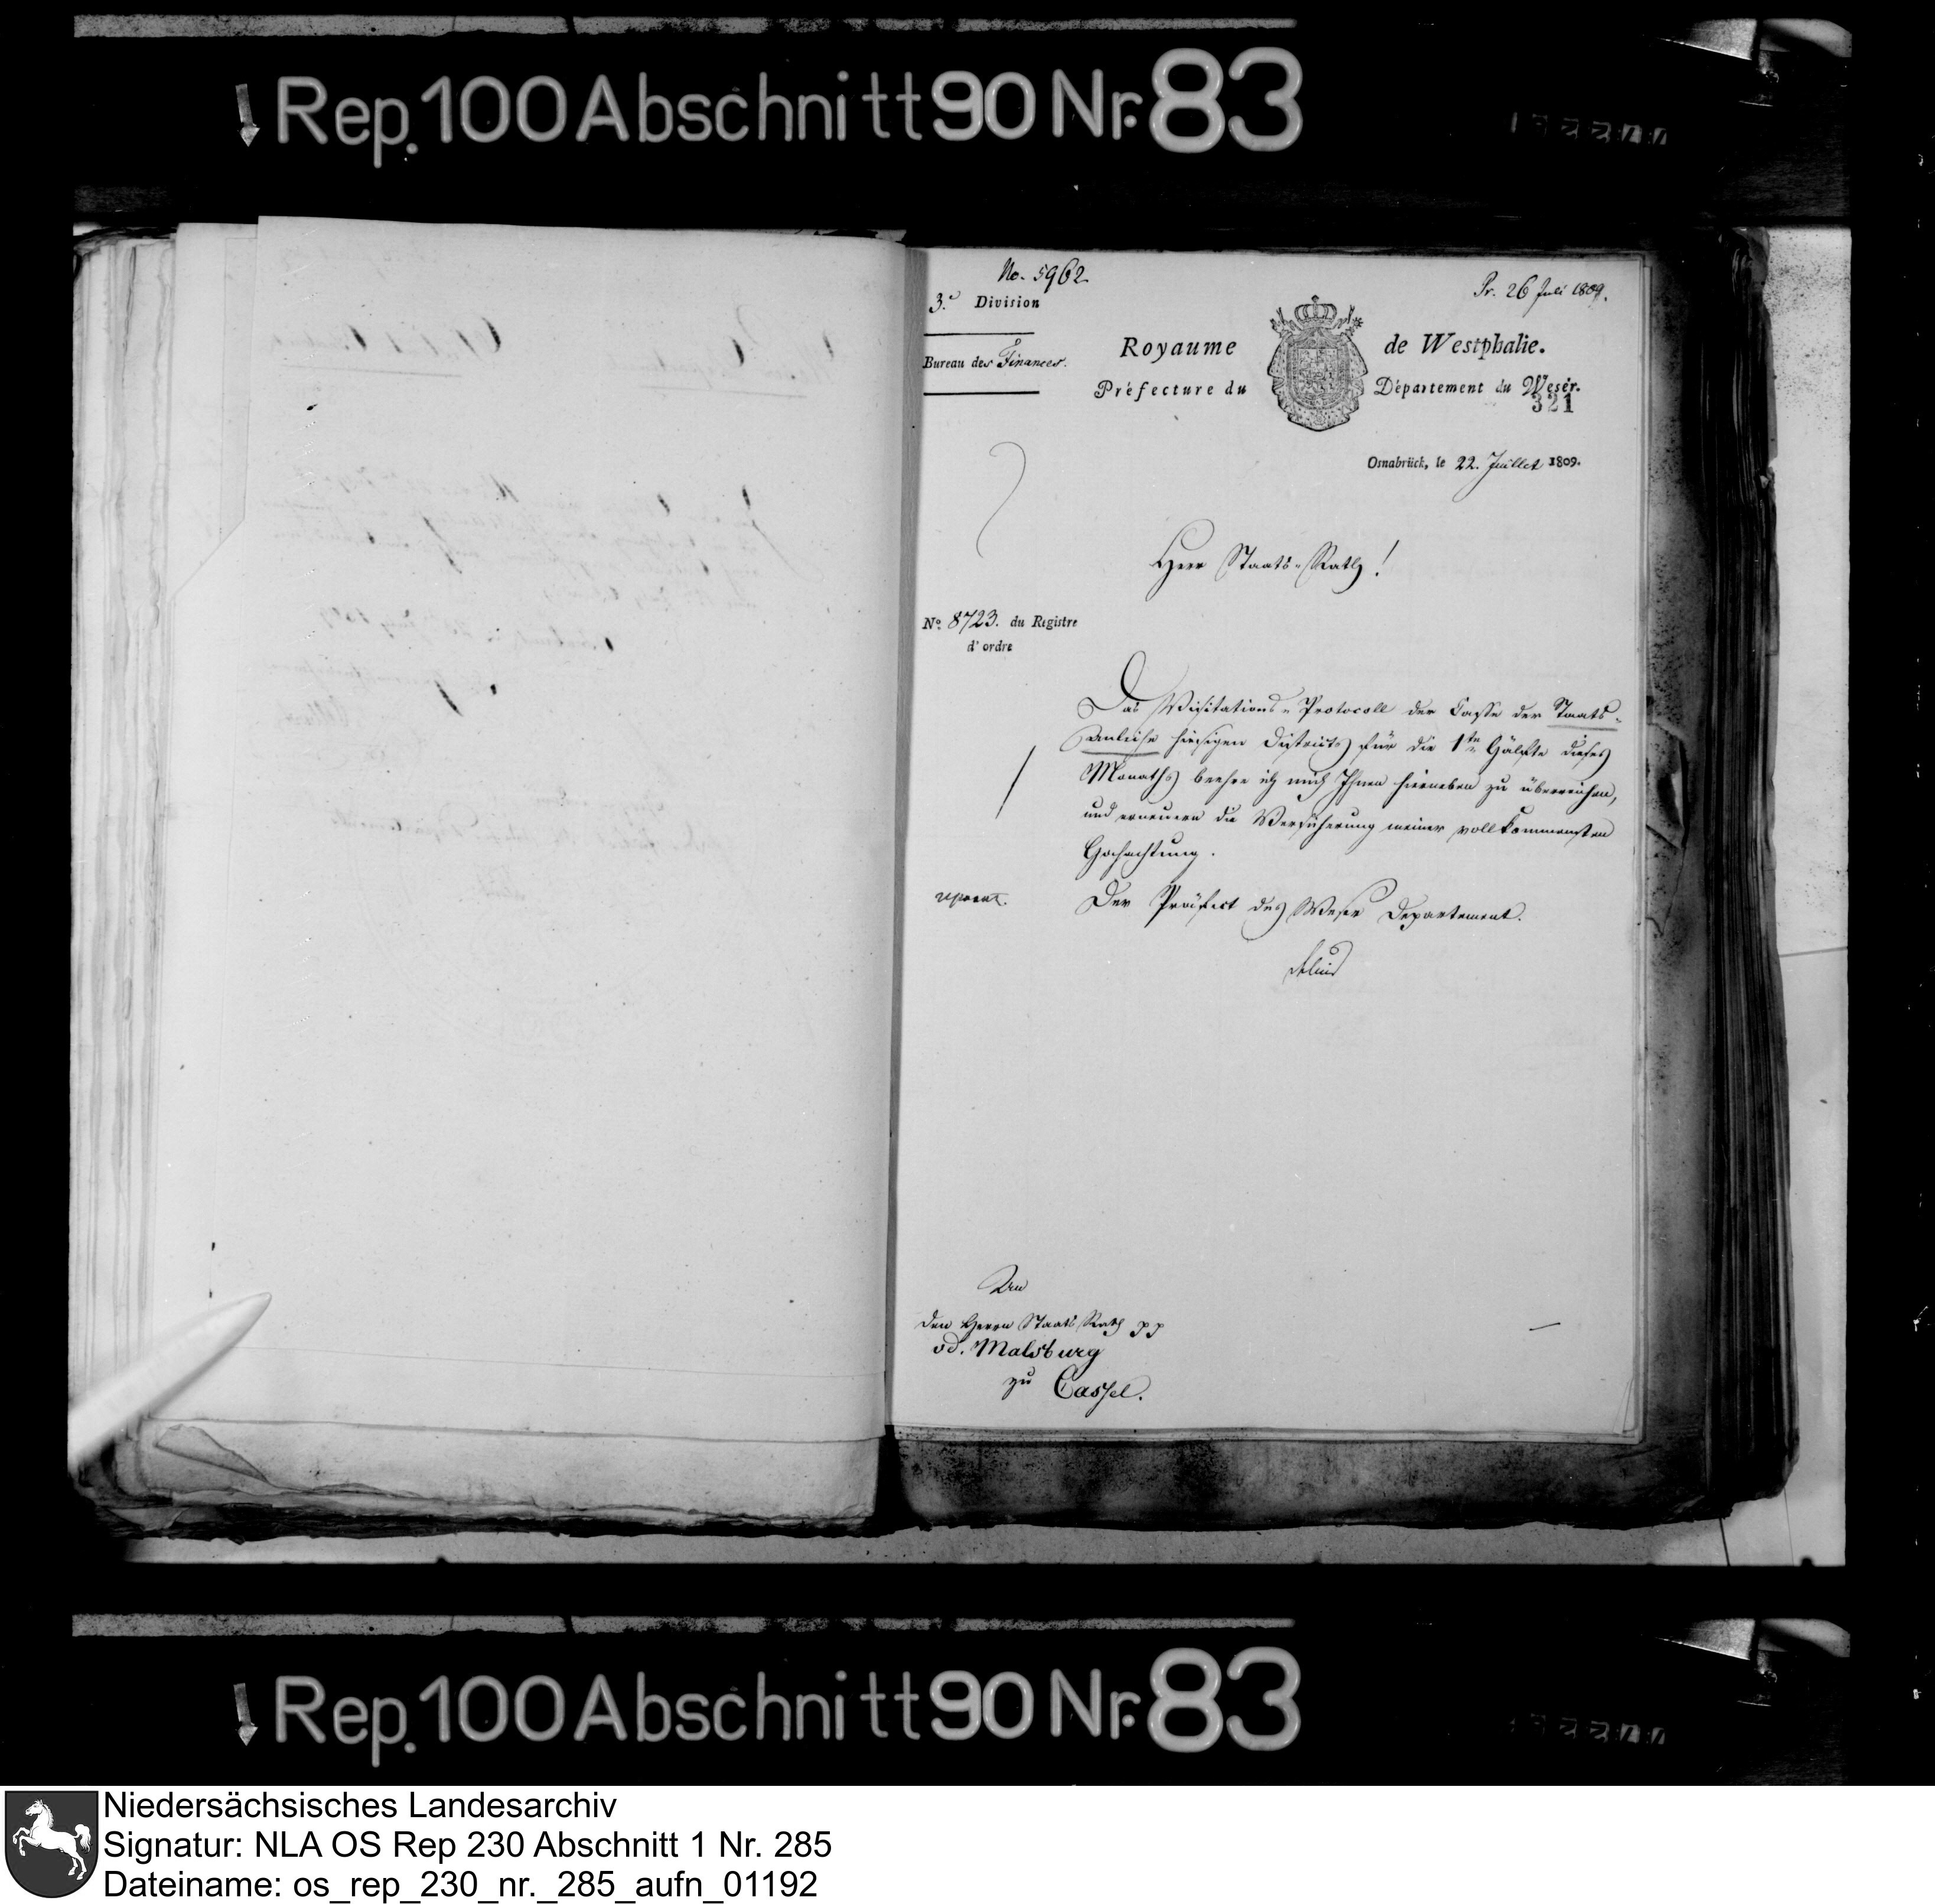 Rep. 100 Abschnitt 90 Nr. 83
No. 5962
Pr. 26 Juli 1809.
3.e Division
Bureau des Finances.
Royaume de Westphalie.
Préfecture du Département du Weser.
321
Osnabrück, le 22. Juillet 1809.
Herr Staats-Rath!
No. 8723. du Registre
d'ordre
Das Visitations-Protocoll der Casse der Staats-
Anleihe hiesigen Districts für die 1te Hälfte dieses
Monaths beehre ich mich Ihnen hierneben zu überreichen,
und erneuere die Versicherung meiner vollkommensten
Hochachtung.
Der Präfect des Weser Departement.
An
den Herrn Staats Rath pp
v d. Malsburg
zu Cassel.
Rep. 100 Abschnitt 90 Nr. 83
Niedersächsisches Landesarchiv
Signatur: NLA OS Rep 230 Abschnitt 1 Nr. 285
Dateiname: os_rep_230_nr._285_aufn_01192